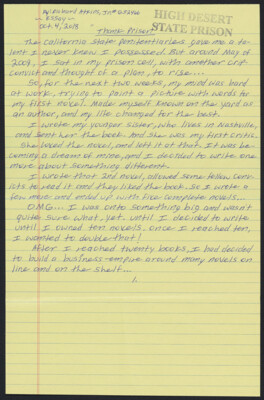 Essay
Oct 4, 2019
HIGH DESERT
STATE PRISON
Thanks Prison!
The California State Penitentiaries gave me a ta-
lent I never knew I possessed. But around May of
2004, I sat in my prison cell, with another crif
convict and thought of a plan, to rise....
So, for the next two weeks, my mind was hard
at work, trying to paint a picture with words to
my first novel. Made myself known on the yard as
an author, and my life changed for the best.
I wrote my younger sister, who lives in Nashville,
and sent her the book. And she was my first critic.
She loved the novel, and left it at that. It was be-
coming a dream of mine, and I decided to write one
more about something different.
I wrote that 2nd novel, allowed some fellow conv-
icts to read it and they liked the book. So I wrote a
few more and ended up with five complete novels...
O.M.G... I was onto something big and wasn't
quite sure what, yet. Until I decided to write
until I owned ten novels. Once I reached ten,
I wanted to double that!
After I reached twenty books, I had decided
to build a business-empire around many novels on
line and on the shelf...
1.